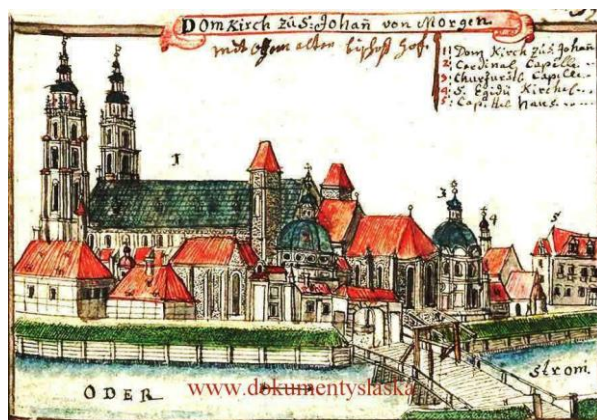 Dom Kirch zu S: Johañ von Morgen
mit dem alten bischoff hof.
1: Dom Kirch zu S: Johañ
2: Cardinal Capelle
3: Churfürstl Capelle
4: S. Egidii Kirchel
5: Capittel Haus
1
3
4
5
ODER
Strom
www.dokumentyslaska